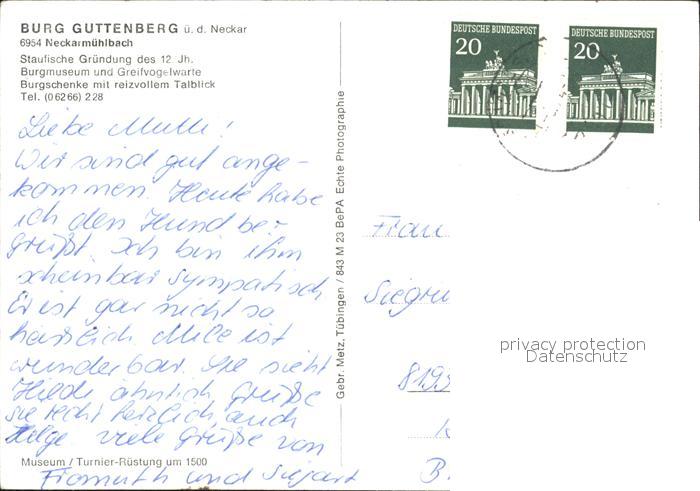 BURG GUTTENBERG ü. d. Neckar
6954 Neckarmühlbach
Staufische Gründung des 12 Jh.
Burgmuseum und Greifvogelwarte
Burgschenke mit reizvollem Talblick
Tel. (06266) 228
DEUTSCHE BUNDESPOST
20
DEUTSCHE BUNDESPOST
20
Liebe Mutti!
Wir sind gut ange-
kommen. Heute habe
ich den Hund be-
grüßt. Ich bin ihm
scheinbar sympatisch
Er ist gar nicht so
hässlich. ist
wunderbar. Sie sieht
Hilde ähnlich. Grüße
sie recht herzlich, auch
Helge. viele Grüße von
und
Museum / Turnier-Rüstung um 1500
Gebr. Metz, Tübingen / 843 M 23 BePA Echte Photographie
Frau
Siegru
privacy protection
Datenschutz
8193
B.